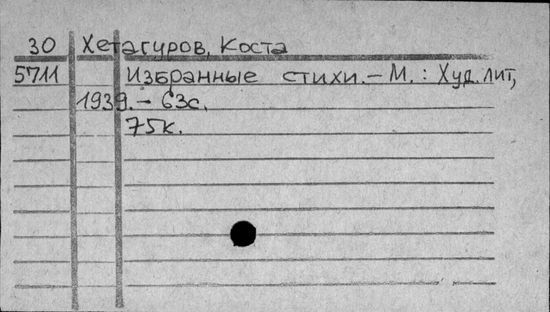 30 Хетагуров, Коста
5711 Избранные стихи. – М. : Худ. лит,
1939. – 63с.
75к.